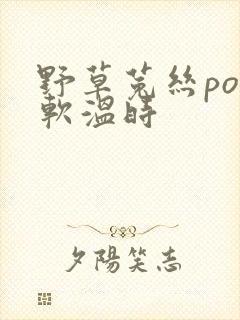 野草菟絲po
軟溫時
夕陽笑志